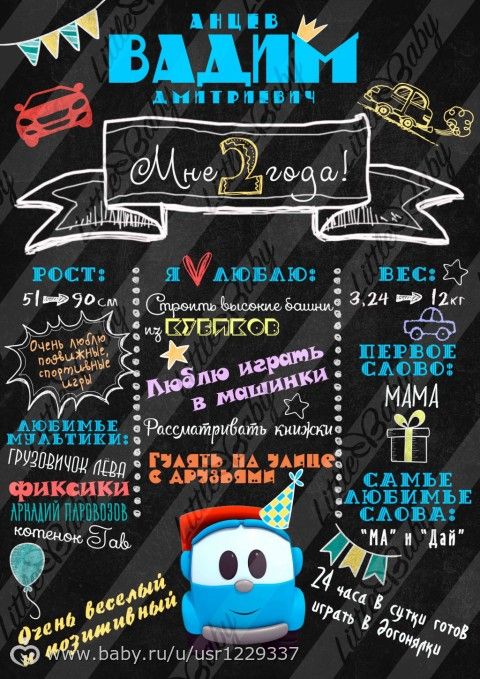 АНЦЕВ
ВАДИМ
ДМИТРИЕВИЧ
Мне 2 года!
РОСТ:
51 90 см
Очень люблю
подвижные,
спортивные
игры
ЛЮБИМЫЕ
МУЛЬТИКИ:
ГРУЗОВИЧОК ЛЁВА
ФИКСИКИ
АРКАДИЙ ПАРОВОЗОВ
котенок Гав
Очень веселый
и позитивный
Я ЛЮБЛЮ:
Строить высокие башни
из КУБИКОВ
Люблю играть
в машинки
Рассматривать книжки
ГУЛЯТЬ НА УЛИЦЕ
С ДРУЗЬЯМИ
ВЕС:
3,24 12кг
ПЕРВОЕ
СЛОВО:
МАМА
САМЫЕ
ЛЮБИМЫЕ
СЛОВА:
"МА" и "Дай"
24 часа в сутки готов
играть в догонялки
www.baby.ru/u/usr1229337
Little Baby